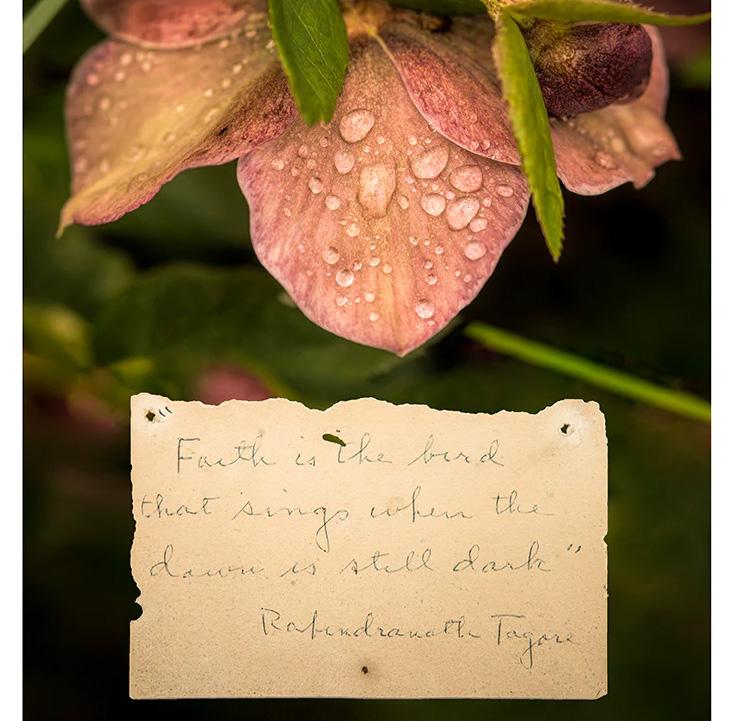 "Faith is the bird
that sings when the
dawn is still dark"
Rabindranath Tagore